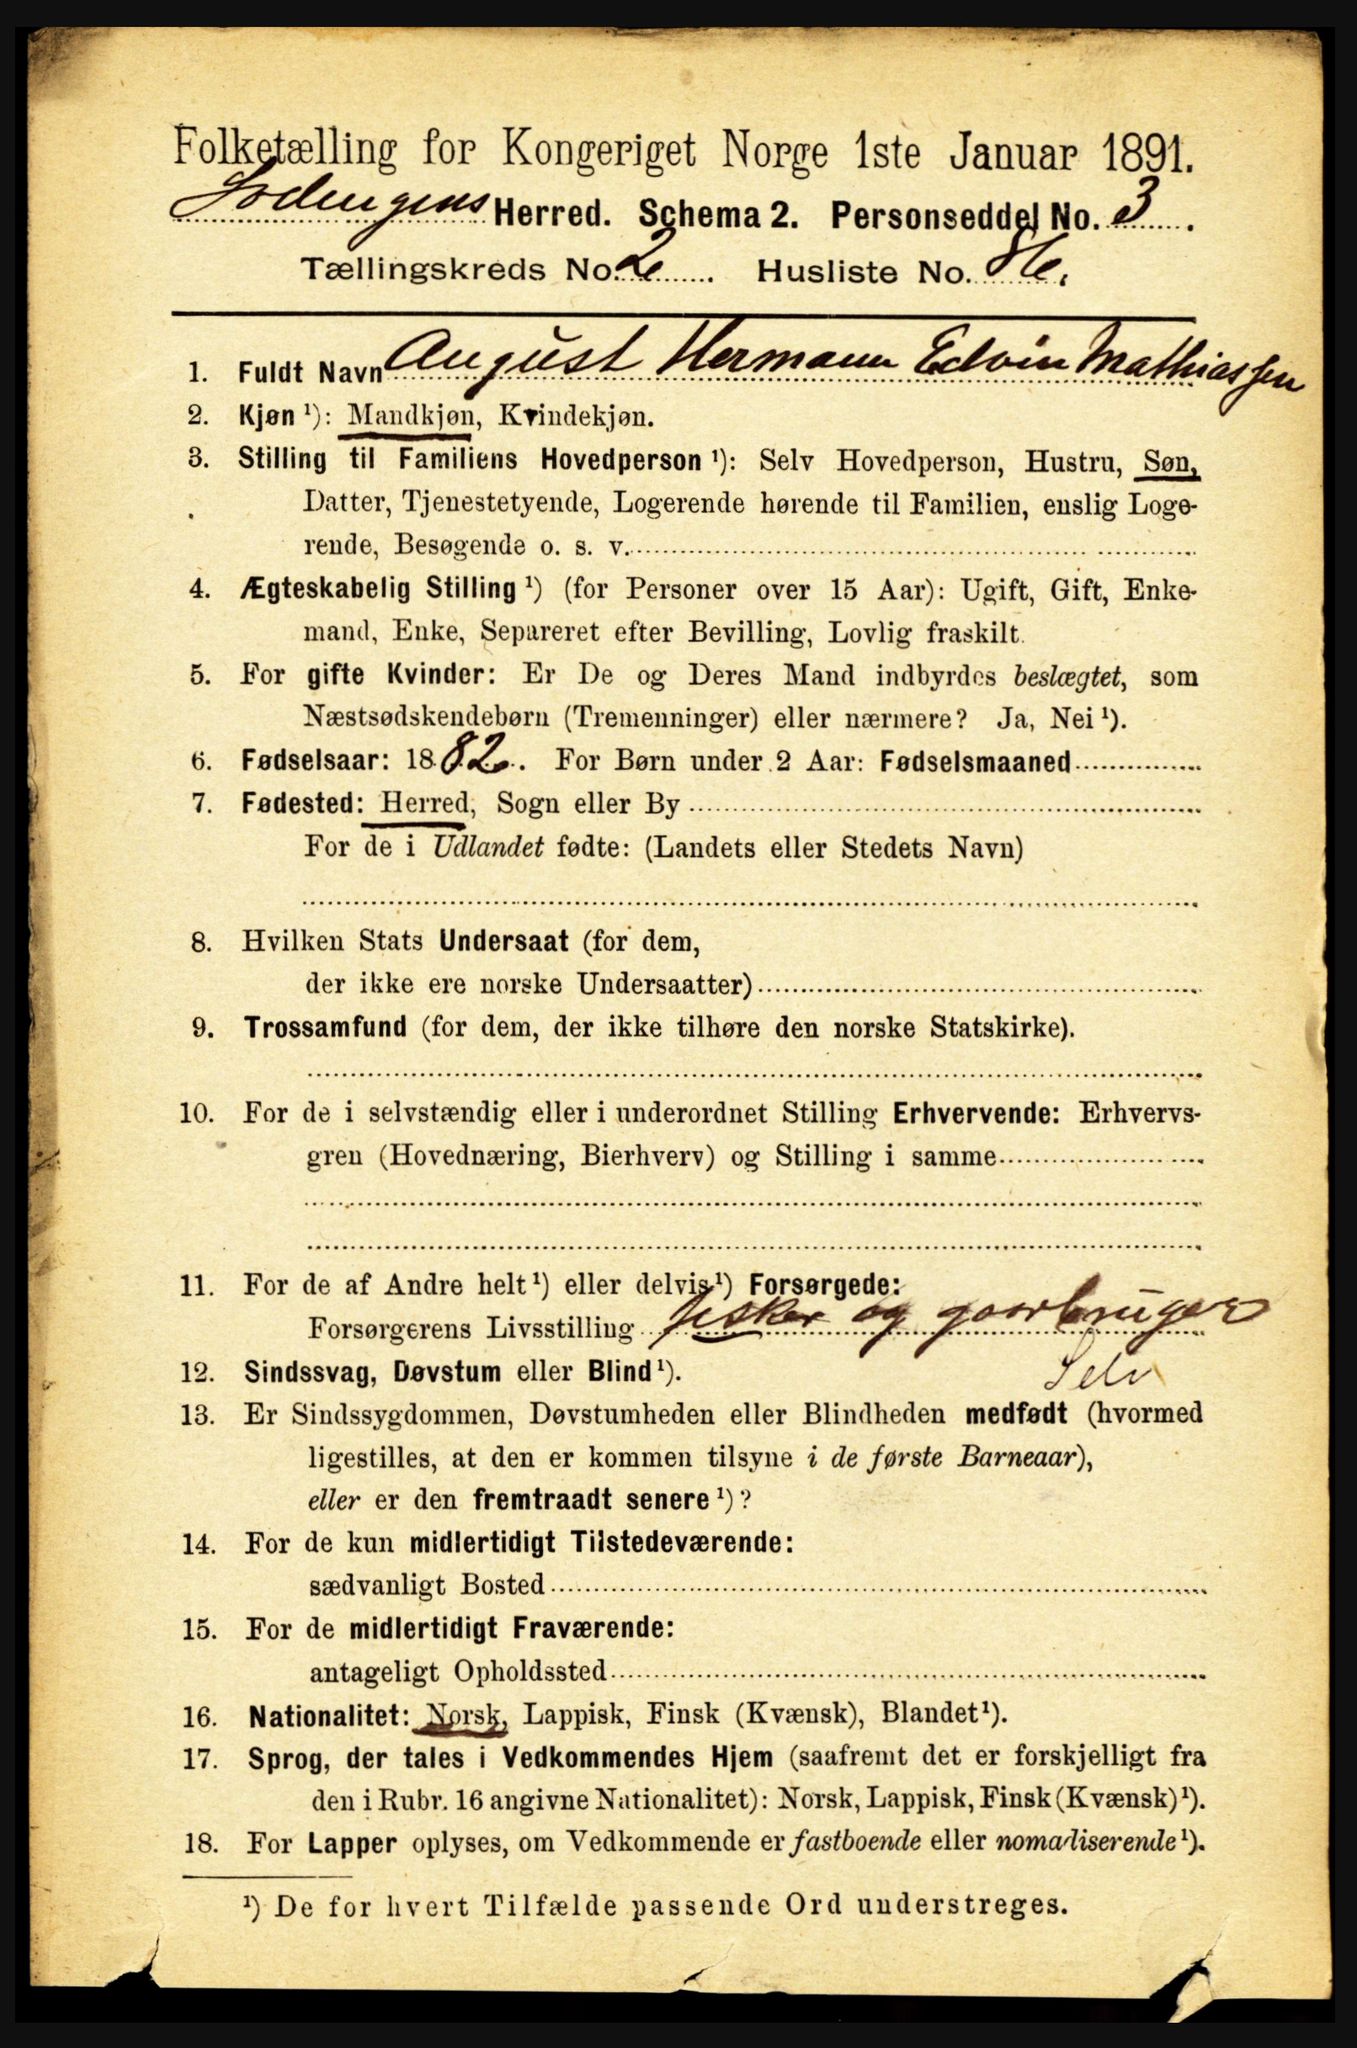 Folketælling for Kongeriget Norge 1ste Januar 1891.
Lødingens Herred. Schema 2. Personseddel No. 3.
Tællingskreds No. 2. Husliste No.
1. Fuldt Navn August Hermann Edvin Mathiassen
2. Kjøn ¹): Mandkjøn, Kvindekjøn.
3. Stilling til Familiens Hovedperson ¹): Selv Hovedperson, Hustru, Søn,
Datter, Tjenestetyende, Logerende hørende til Familien, enslig Loge-
rende, Besøgende o. s. v.
4. Ægteskabelig Stilling ¹) (for Personer over 15 Aar): Ugift, Gift, Enke-
mand, Enke, Separeret efter Bevilling, Lovlig fraskilt.
5. For gifte Kvinder: Er De og Deres Mand indbyrdes beslægtet, som
Næstsødskendebørn (Tremenninger) eller nærmere? Ja, Nei ¹).
6. Fødselsaar: 1882. For Børn under 2 Aar: Fødselsmaaned
7. Fødested: Herred, Sogn eller By
For de i Udlandet fødte: (Landets eller Stedets Navn)
8. Hvilken Stats Undersaat (for dem,
der ikke ere norske Undersaatter)
9. Trossamfund (for dem, der ikke tilhøre den norske Statskirke).
10. For de i selvstændig eller i underordnet Stilling Erhvervende: Erhvervs-
gren (Hovednæring, Bierhverv) og Stilling i samme
11. For de af Andre helt ¹) eller delvis ¹) Forsørgede:
Forsørgerens Livsstilling fisker og gaarbruger
12. Sindssvag, Døvstum eller Blind ¹). Selv
13. Er Sindssygdommen, Døvstumheden eller Blindheden medfødt (hvormed
ligestilles, at den er kommen tilsyne i de første Barneaar),
eller er den fremtraadt senere ¹)?
14. For de kun midlertidigt Tilstedeværende:
sædvanligt Bosted
15. For de midlertidigt Fraværende:
antageligt Opholdssted
16. Nationalitet: Norsk, Lappisk, Finsk (Kvænsk), Blandet ¹).
17. Sprog, der tales i Vedkommendes Hjem (saafremt det er forskjelligt fra
den i Rubr. 16 angivne Nationalitet): Norsk, Lappisk, Finsk (Kvænsk) ¹).
18. For Lapper oplyses, om Vedkommende er fastboende eller nomadiserende ¹).
¹) De for hvert Tilfælde passende Ord understreges.